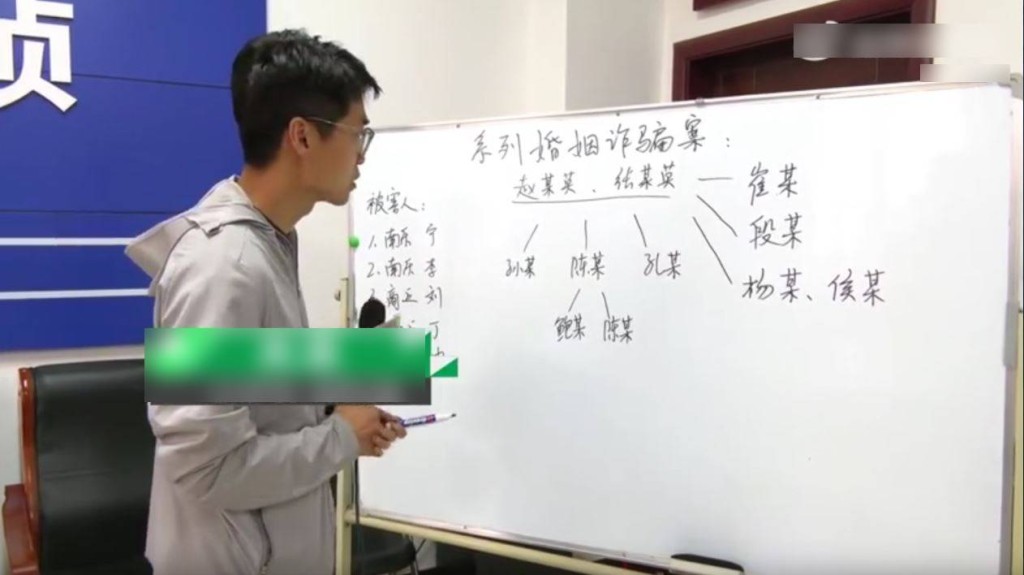 侦
系列婚姻诈骗案:
赵某英、张某英
崔某
段某
杨某、侯某
孙某 陈某 孔某
鲍某 陈某
被害人:
1. 南乐 宁
2. 南乐 李
刘
丁
山